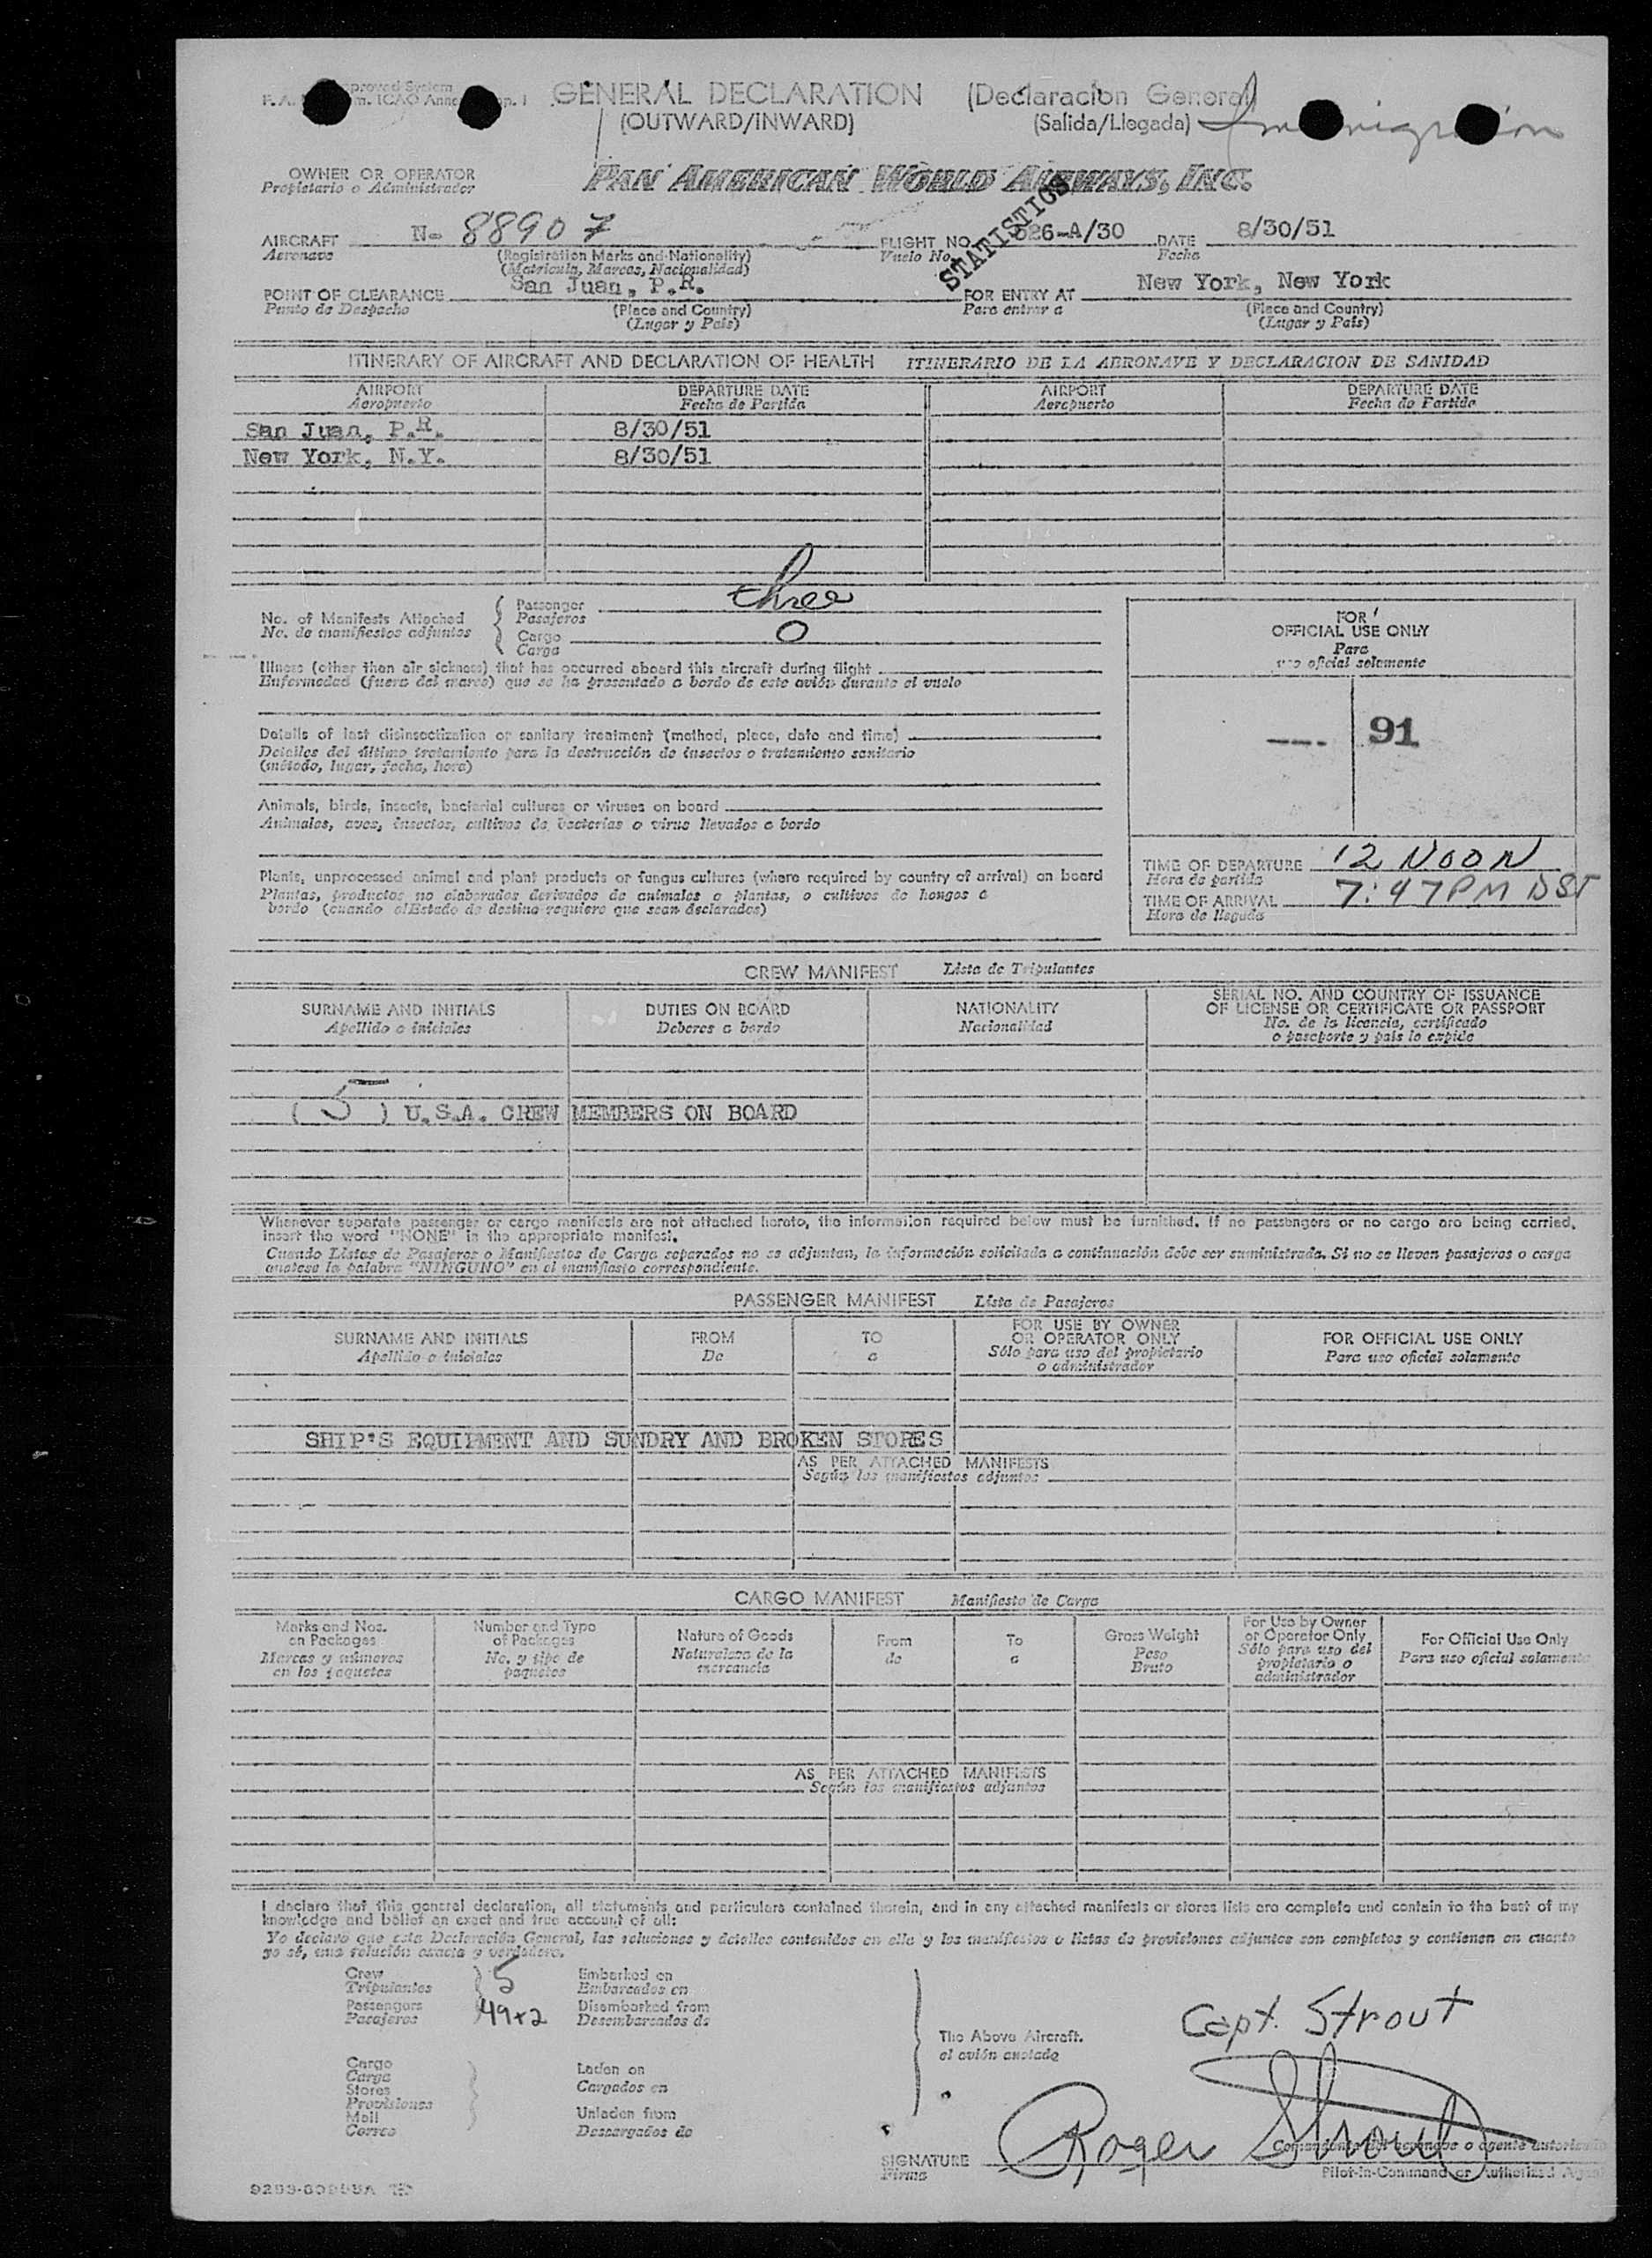 GENERAL DECLARATION (Declaración General)
(OUTWARD/INWARD) (Salida/Llegada) Immigration
OWNER OR OPERATOR PAN AMERICAN WORLD AIRWAYS, INC.
Propietario o Administrador
STATISTICS
AIRCRAFT N- 88907 FLIGHT NO. 526-A/30 DATE 8/30/51
Aeronave (Registration Marks and Nationality) Vuelo No. Fecha
(Matricula, Marcas, Nacionalidad)
POINT OF CLEARANCE San Juan, P.R. FOR ENTRY AT New York, New York
Punto de Despacho (Place and Country) Para entrar a (Place and Country)
(Lugar y País) (Lugar y País)
ITINERARY OF AIRCRAFT AND DECLARATION OF HEALTH ITINERARIO DE LA AERONAVE Y DECLARACION DE SANIDAD
AIRPORT DEPARTURE DATE AIRPORT DEPARTURE DATE
Aeropuerto Fecha de Partida Aeropuerto Fecha de Partida
San Juan, P.R. 8/30/51
New York, N.Y. 8/30/51
No. of Manifests Attached Passenger three
No. de manifiestos adjuntos Pasajeros
Cargo 0
Carga
Illness (other than air sickness) that has occurred aboard this aircraft during flight
Enfermedad (fuera del mareo) que se ha presentado a bordo de este avión durante el vuelo
Details of last disinsectization or sanitary treatment (method, place, date and time)
Detalles del último tratamiento para la destrucción de insectos o tratamiento sanitario
(método, lugar, fecha, hora)
Animals, birds, insects, bacterial cultures or viruses on board
Animales, aves, insectos, cultivos de bacterias o virus llevados a bordo
Plants, unprocessed animal and plant products or fungus cultures (where required by country of arrival) on board
Plantas, productos no elaborados derivados de animales o plantas, o cultivos de hongos a
bordo (cuando el Estado de destino requiere que sean declarados)
FOR
OFFICIAL USE ONLY
Para
uso oficial solamente
91
TIME OF DEPARTURE 12 NOON
Hora de partida
TIME OF ARRIVAL 7:47 PM DST
Hora de llegada
CREW MANIFEST Lista de Tripulantes
SURNAME AND INITIALS DUTIES ON BOARD NATIONALITY SERIAL NO. AND COUNTRY OF ISSUANCE
Apellido e iniciales Deberes a bordo Nacionalidad OF LICENSE OR CERTIFICATE OR PASSPORT
No. de la licencia, certificado
o pasaporte y país lo expide
( 5 ) U.S.A. CREW MEMBERS ON BOARD
Whenever separate passenger or cargo manifests are not attached hereto, the information required below must be furnished. If no passengers or no cargo are being carried,
insert the word "NONE" in the appropriate manifest.
Cuando Listas de Pasajeros o Manifiestos de Carga separados no se adjuntan, la información solicitada a continuación debe ser suministrada. Si no se lleven pasajeros o carga
anotese la palabra "NINGUNO" en el manifiesto correspondiente.
PASSENGER MANIFEST Lista de Pasajeros
SURNAME AND INITIALS FROM TO FOR USE BY OWNER OR OPERATOR ONLY FOR OFFICIAL USE ONLY
Apellido e iniciales De a Sólo para uso del propietario o administrador Para uso oficial solamente
SHIP'S EQUIPMENT AND SUNDRY AND BROKEN STORES
AS PER ATTACHED MANIFESTS
Según los manifiestos adjuntos
CARGO MANIFEST Manifiesto de Carga
Marks and Nos. on Packages Number and Type of Packages Nature of Goods From To Gross Weight For Use by Owner or Operator Only For Official Use Only
Marcas y números en los paquetes No. y tipo de paquetes Naturaleza de la mercancía de a Peso Bruto Sólo para uso del propietario o administrador Para uso oficial solamente
AS PER ATTACHED MANIFESTS
Según los manifiestos adjuntos
I declare that this general declaration, all statements and particulars contained therein, and in any attached manifests or stores lists are complete and contain to the best of my
knowledge and belief an exact and true account of all:
Yo declaro que esta Declaración General, las relaciones y detalles contenidos en ella y los manifiestos o listas de provisiones adjuntos son completos y contienen en cuanto
yo sé, una relación exacta y verdadera.
Crew 5 Embarked on
Tripulantes Embarcados en
Passengers 49+2 Disembarked from
Pasajeros Desembarcados de
The Above Aircraft.
el avión anotado
Capt. Strout
Cargo Laden on
Carga Cargados en
Stores
Provisiones
Mail Unladen from
Correo Descargados de
SIGNATURE Roger Strout
Firma
Comandante del aeronave o agente autorizado
Pilot-in-Command or Authorized Agent